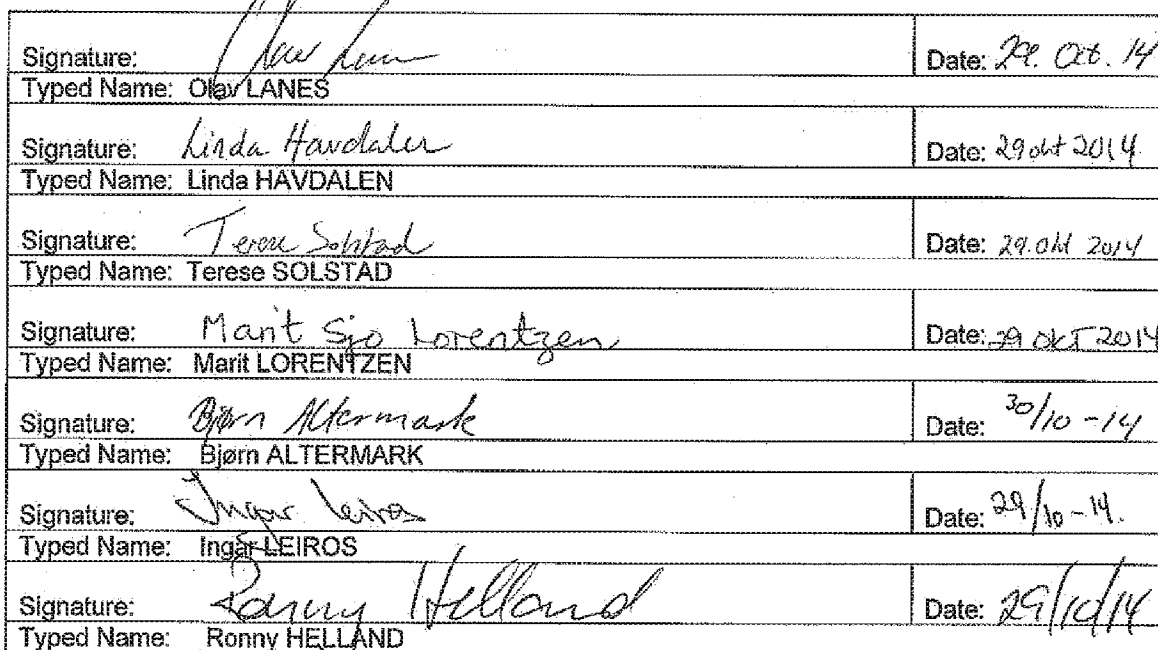 Signature: Olav Lanes Date: 29. Oct. 14
Typed Name: Olav LANES
Signature: Linda Havdalen Date: 29 okt 2014
Typed Name: Linda HAVDALEN
Signature: Terese Solstad Date: 29. okt 2014
Typed Name: Terese SOLSTAD
Signature: Marit Sjo Lorentzen Date: 29 okT 2014
Typed Name: Marit LORENTZEN
Signature: Bjørn Altermark Date: 30/10 - 14
Typed Name: Bjørn ALTERMARK
Signature: Ingar Leiros Date: 29/10 - 14.
Typed Name: Ingar LEIROS
Signature: Ronny Helland Date: 29/10/14
Typed Name: Ronny HELLAND